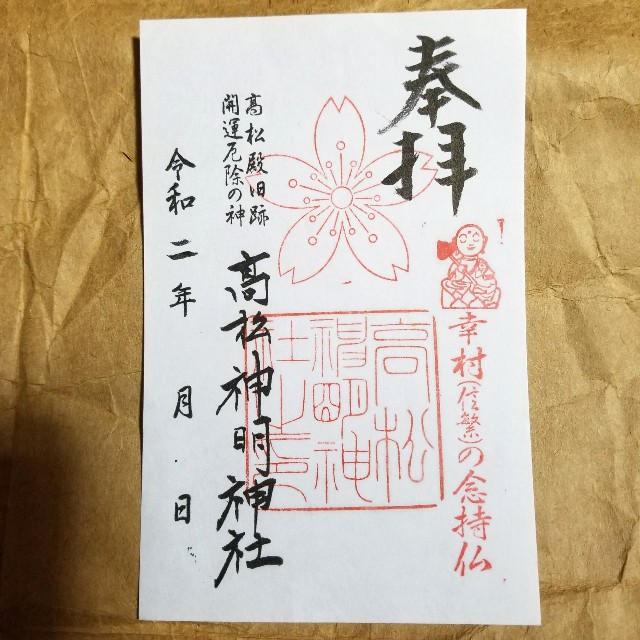 奉拝
幸村(信繁)の念持仏
高松殿旧跡
開運厄除の神
高松神明神社
高松
神明神
社之印
令和二年 月 日